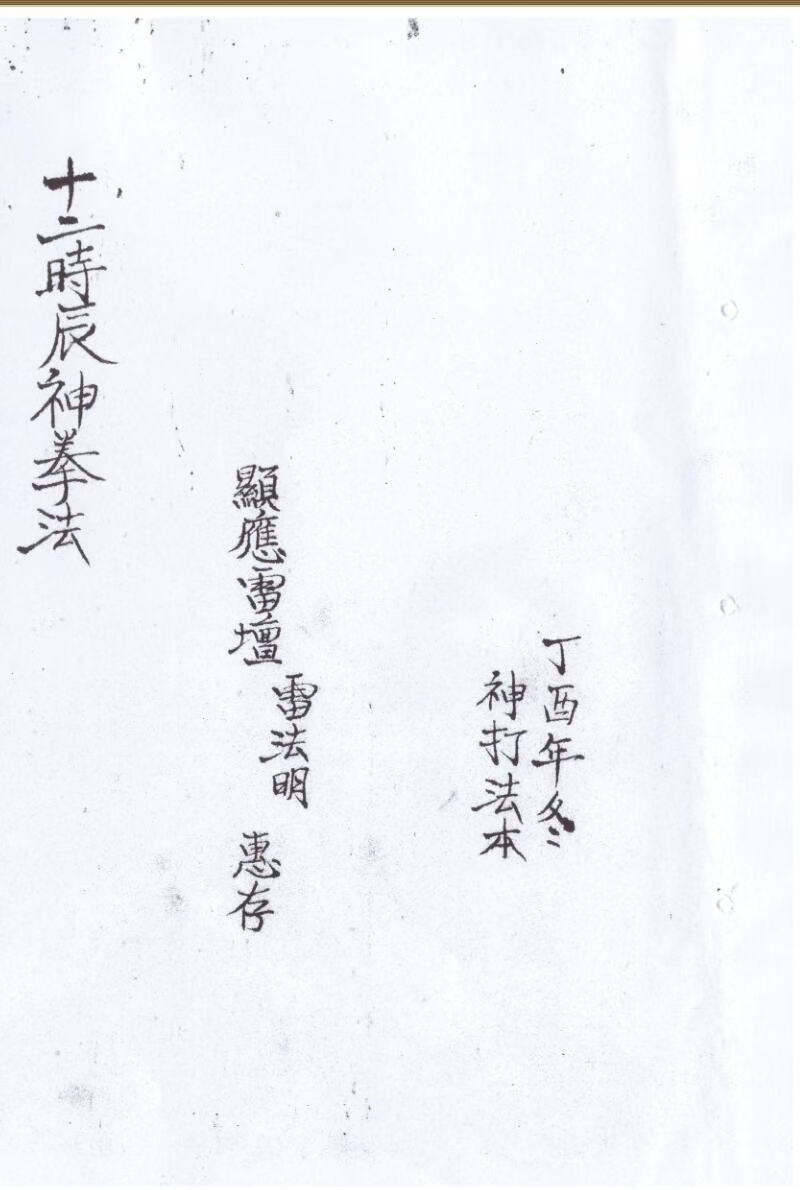 丁酉年冬
神打法本
顯應雷壇
雷法明
惠存
十二時辰神拳法